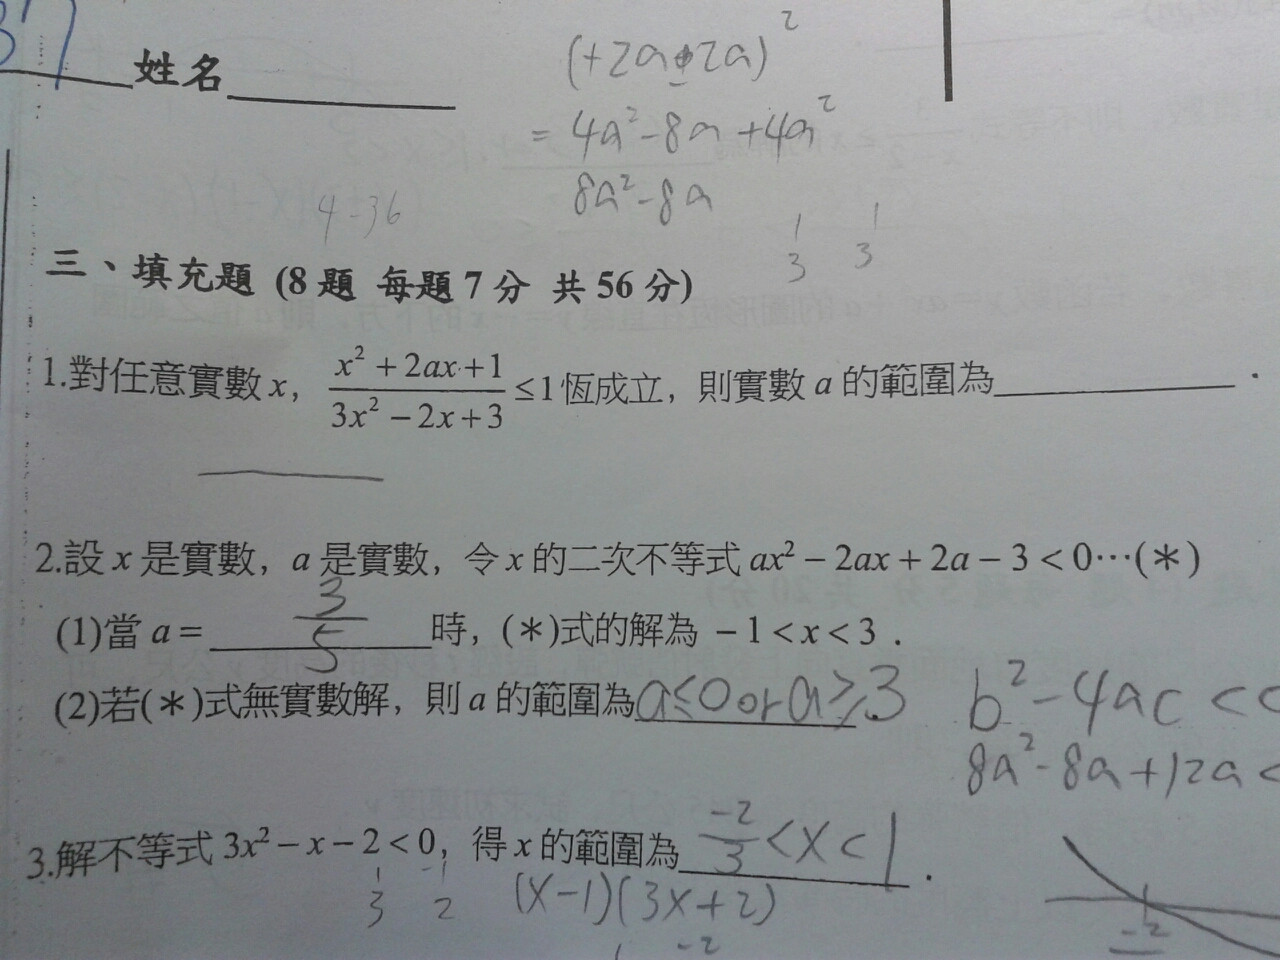 37
姓名
(+2a+2a)²
= 4a²-8a+4a²
8a²-8a
4-36
1 1
3 3
三、填充題 (8題 每題7分 共56分)
1.對任意實數x, (x²+2ax+1)/(3x²-2x+3) ≤1恆成立, 則實數a的範圍為__________.
2.設x是實數, a是實數, 令x的二次不等式ax²-2ax+2a-3<0⋯(*)
(1)當a= 3/5 時, (*)式的解為 -1<x<3.
(2)若(*)式無實數解, 則a的範圍為a≤0 or a≥3.
b²-4ac<
8a²-8a+12a<
3.解不等式3x²-x-2<0, 得x的範圍為 -2/3<x<1.
1 -1
3 2
(x-1)(3x+2)
1 -2
-2